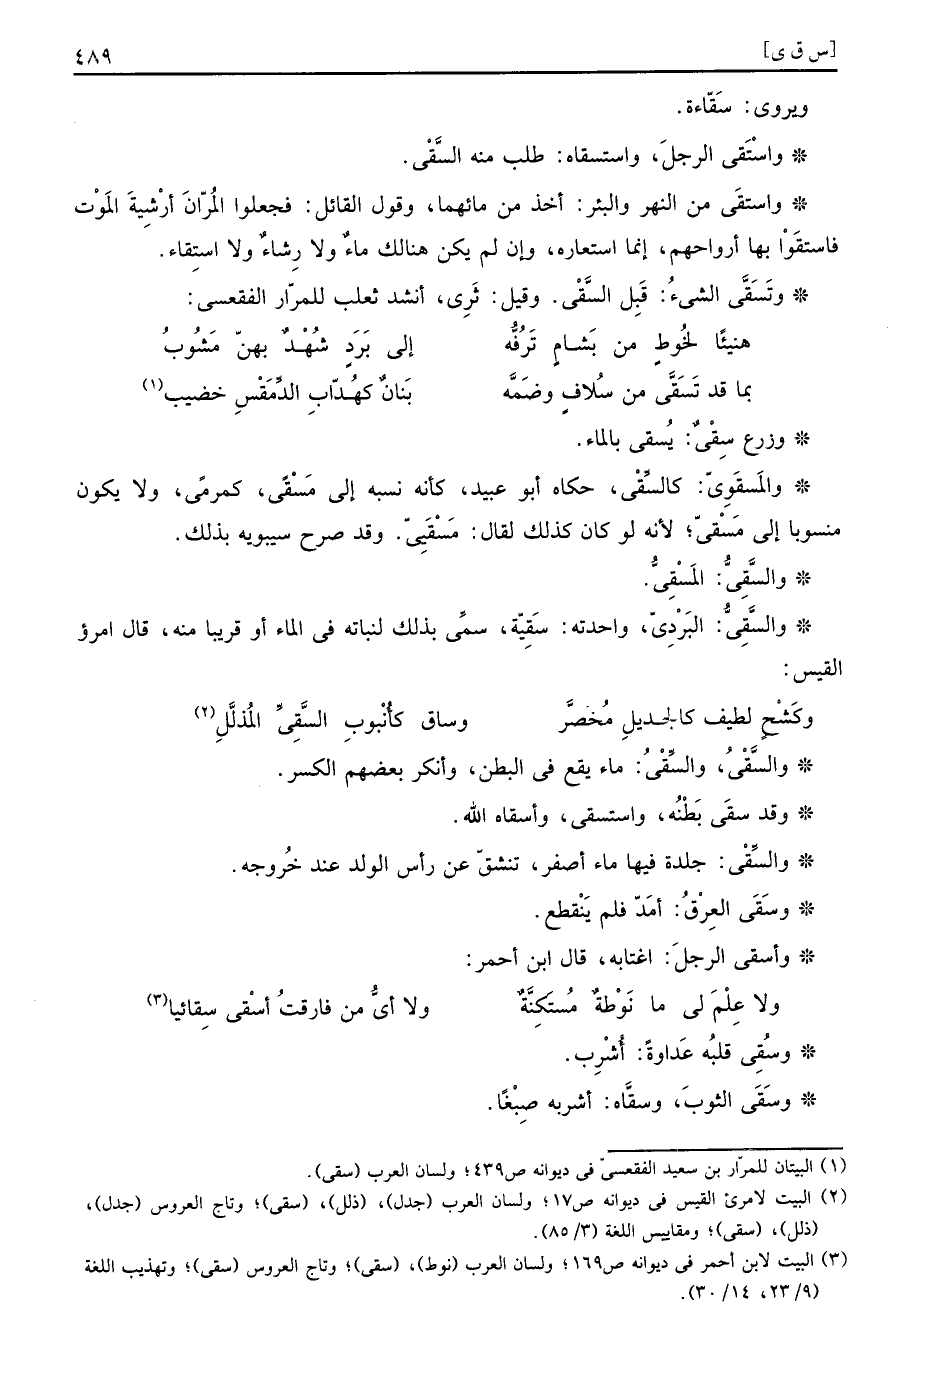 [س ق ى] ٤٨٩
ويروى: سَقّاءة.
* واسْتَقى الرجلَ، واستسقاه: طلب منه السَّقْى.
* واستقَى من النهر والبئر: أخذ من مائهما، وقول القائل: فجعلوا المُرّانَ أرْشِيةَ المَوْت
فاستقَوْا بها أرواحهم، إنما استعاره، وإن لم يكن هنالك ماءٌ ولا رِشاءٌ ولا استِقاء.
* وتَسَقَّى الشىءُ: قَبِل السَّقْى. وقيل: ثَرِى، أنشد ثعلب للمرّار الفقعسى:
هنيئًا لخُوطٍ من بَشامٍ تَرُفُّه إلى بَرَدٍ شُهْدٌ بهنّ مَشُوبُ
بما قد تَسَقَّى من سُلافٍ وضَمَّه بَنانٌ كهُدّابِ الدِّمَقْسِ خضيب(١)
* وزرع سِقْىٌ: يُسقى بالماء.
* والمَسقَوِىّ: كالسِّقْى، حكاه أبو عبيد، كأنه نسبه إلى مَسْقًى، كمرمًى، ولا يكون
منسوبا إلى مَسْقِىّ؛ لأنه لو كان كذلك لقال: مَسْقَيِىّ. وقد صرح سيبويه بذلك.
* والسَّقِىُّ: المَسْقِىُّ.
* والسَّقِىُّ: البَرْدِىّ، واحدته: سَقِيّة، سمِّى بذلك لنباته فى الماء أو قريبا منه، قال امرؤ
القيس:
وكَشْحٍ لطيف كالجديلِ مُخصَّر وساق كأُنْبوبِ السَّقِىِّ المُذلَّلِ(٢)
* والسَّقْىُ، والسِّقْىُ: ماء يقع فى البطن، وأنكر بعضهم الكسر.
* وقد سقَى بَطْنُه، واستسقى، وأسقاه الله.
* والسِّقْى: جلدة فيها ماء أصفر، تنشقّ عن رأس الولد عند خُروجه.
* وسَقَى العِرْقُ: أمَدّ فلم يَنْقطع.
* وأسقى الرجلَ: اغتابه، قال ابن أحمر:
ولا عِلْمَ لى ما نَوْطةٌ مُستَكِنَّةٌ ولا أىُّ من فارقتُ أسْقى سِقائيا(٣)
* وسُقِى قلبُه عَداوةً: أُشْرِب.
* وسَقَى الثوبَ، وسقَّاه: أشربه صِبْغًا.
(١) البيتان للمرّار بن سعيد الفقعسىّ فى ديوانه ص٤٣٩؛ ولسان العرب (سقى).
(٢) البيت لامرئ القيس فى ديوانه ص١٧؛ ولسان العرب (جدل)، (ذلل)، (سقى)؛ وتاج العروس (جدل)،
(ذلل)، (سقى)؛ ومقاييس اللغة (٣/ ٨٥).
(٣) البيت لابن أحمر فى ديوانه ص١٦٩؛ ولسان العرب (نوط)، (سقى)؛ وتاج العروس (سقى)؛ وتهذيب اللغة
(٩/ ٢٣، ١٤/ ٣٠).